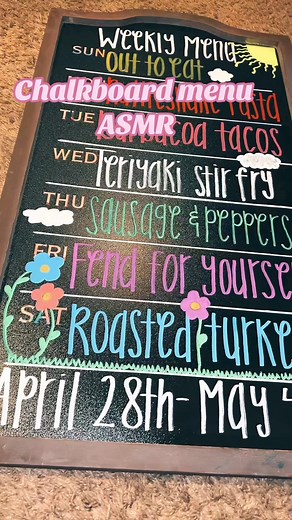 Weekly Menu
SUN out to eat
Chalkboard menu
Pasta
ASMR
TUE Barbacoa tacos
WED Teriyaki stir fry
THU Sausage & peppers
FRI Fend for yourse
SAT Roasted turke
April 28th - May